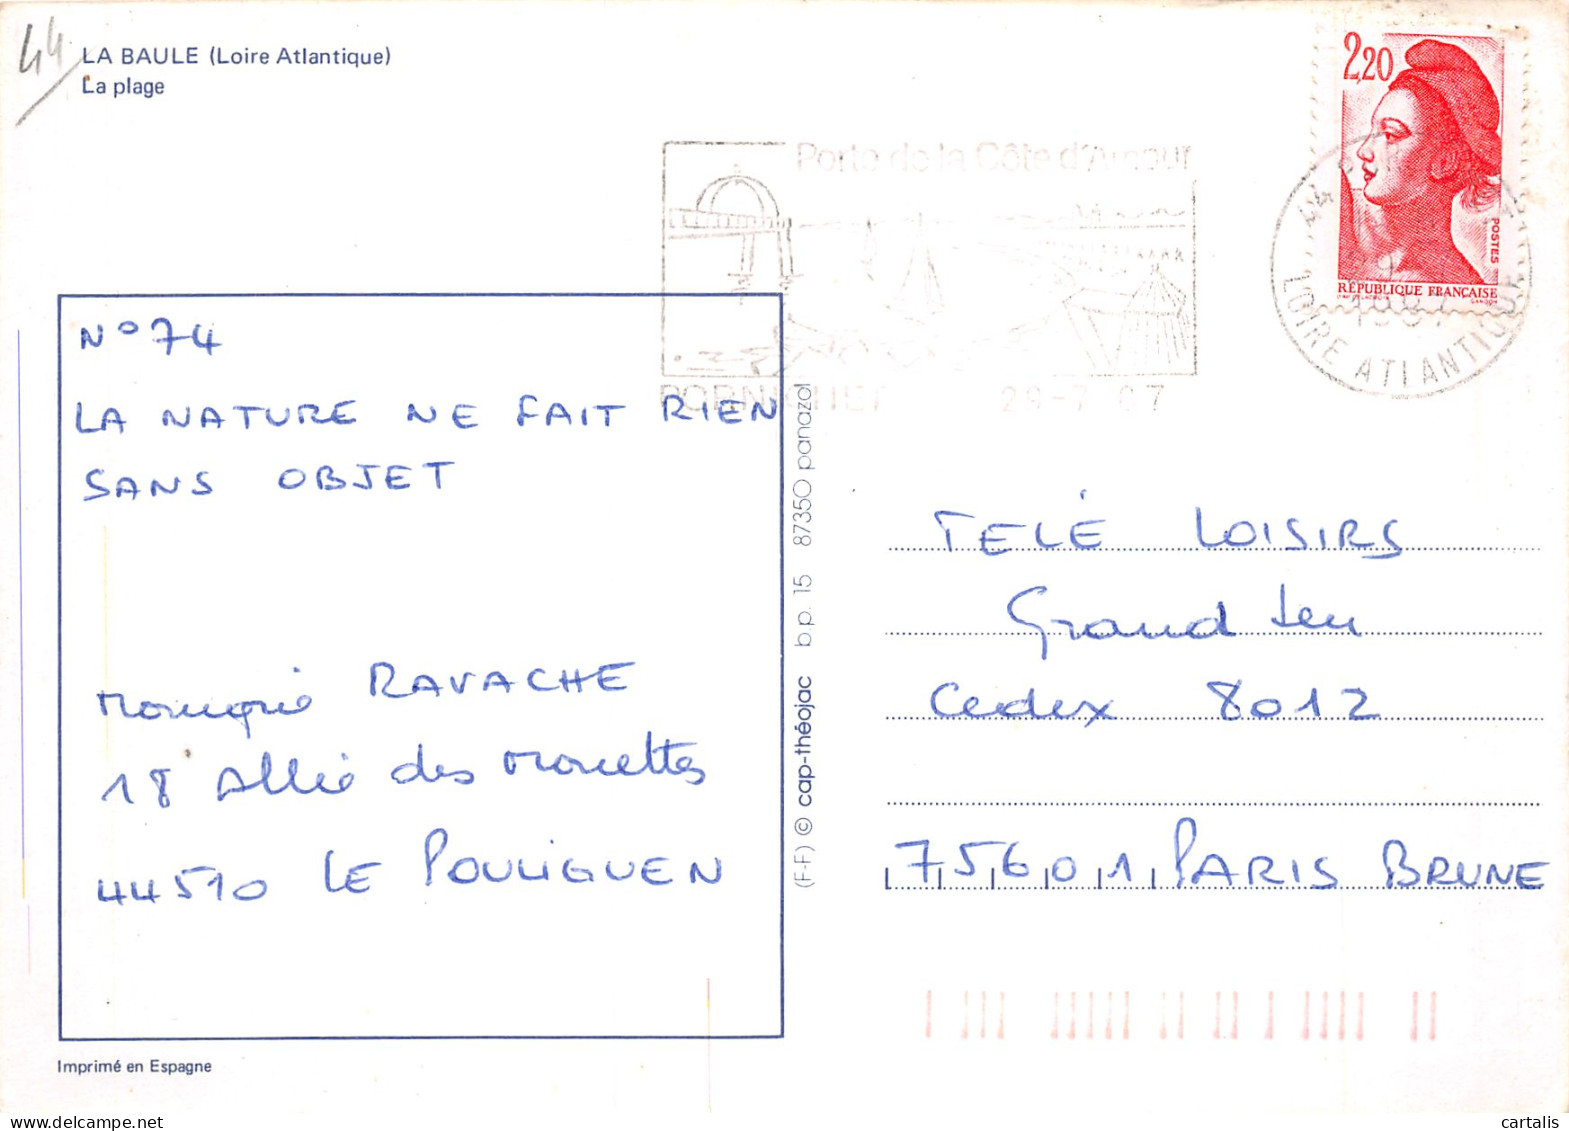 44
LA BAULE (Loire Atlantique)
La plage
2,20
POSTES
RÉPUBLIQUE FRANÇAISE
Porte de la Côte d'Amour
PORNICHET 29-7 87
1987
LOIRE ATLANTIQUE
N° 74
LA NATURE NE FAIT RIEN
SANS OBJET
RAVACHE
18 Allée des Mouettes
44510 LE POULIGUEN
(F-F) © cap-théojac bp. 15 87350 panazol
TELÉ LOISIRS
Grand Jeu
Cedex 8012
75601 PARIS BRUNE
Imprimé en Espagne
cartalis